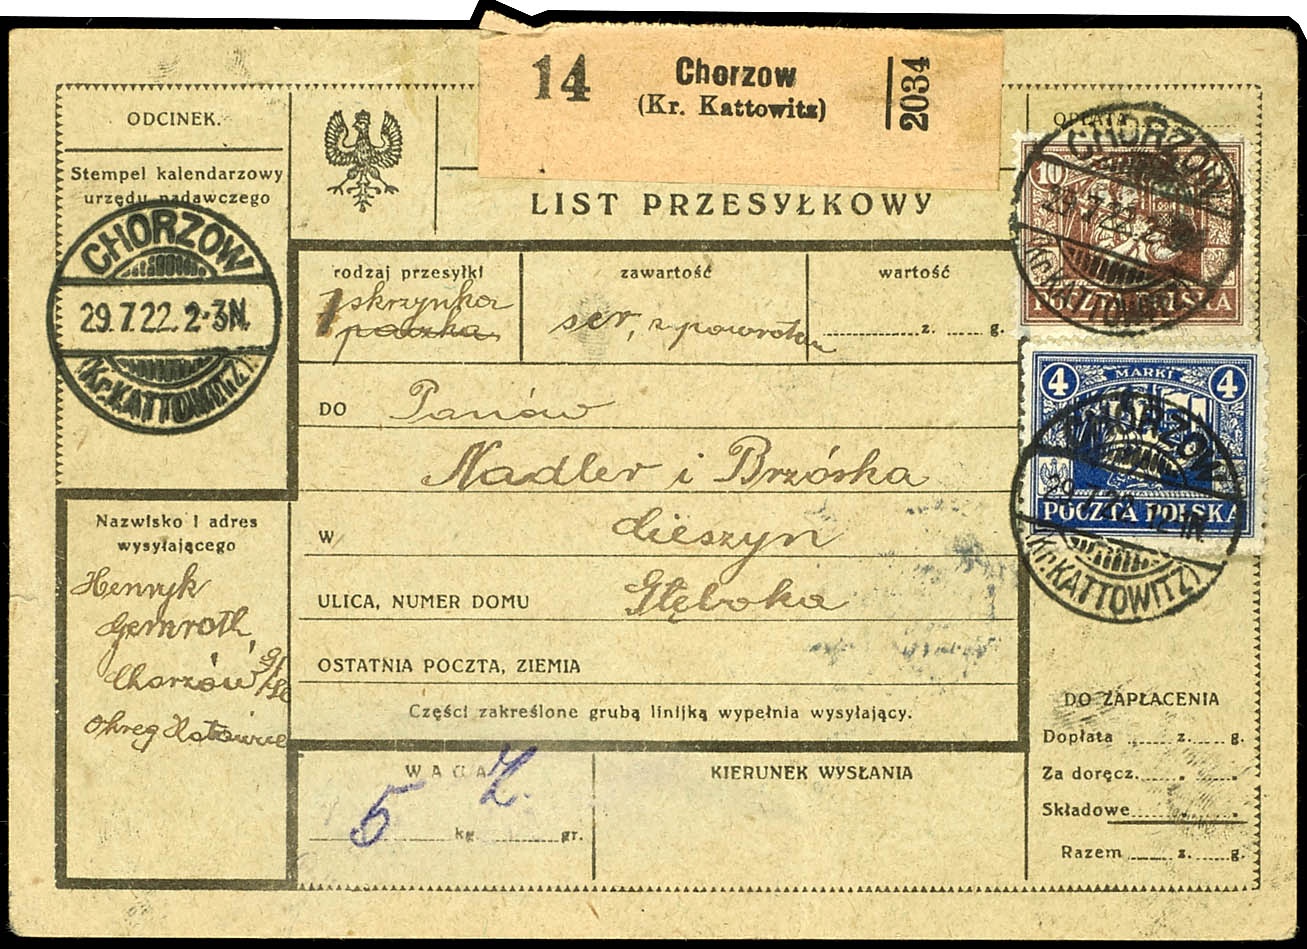 14
Chorzow
(Kr. Kattowitz)
2034
ODCINEK.
Stempel kalendarzowy
urzędu nadawczego
CHORZOW
29.7.22. 2-3N.
(Kr. KATTOWITZ)
LIST PRZESYŁKOWY
OPŁATA
10
POCZTA POLSKA
CHORZOW
29.7.22.
(Kr. KATTOWITZ)
4 MARKI 4
POCZTA POLSKA
CHORZOW
29.7.22. 12-1N.
(Kr. KATTOWITZ)
rodzaj przesyłki
1 skrzynka
paczka
zawartość
ser, z powrotem
wartość
z. g.
DO Panów
Nadler i Brzóska
W Cieszyn
ULICA, NUMER DOMU Głęboka
OSTATNIA POCZTA, ZIEMIA
Części zakreślone grubą linijką wypełnia wysyłający.
Nazwisko i adres
wysyłającego
Henryk
Gemroth,
Chorzów G/Śl
Okreg Katowice
WAGA
5 kg. gr.
KIERUNEK WYSŁANIA
DO ZAPŁACENIA
Dopłata z. g.
Za doręcz.
Składowe
Razem z. g.